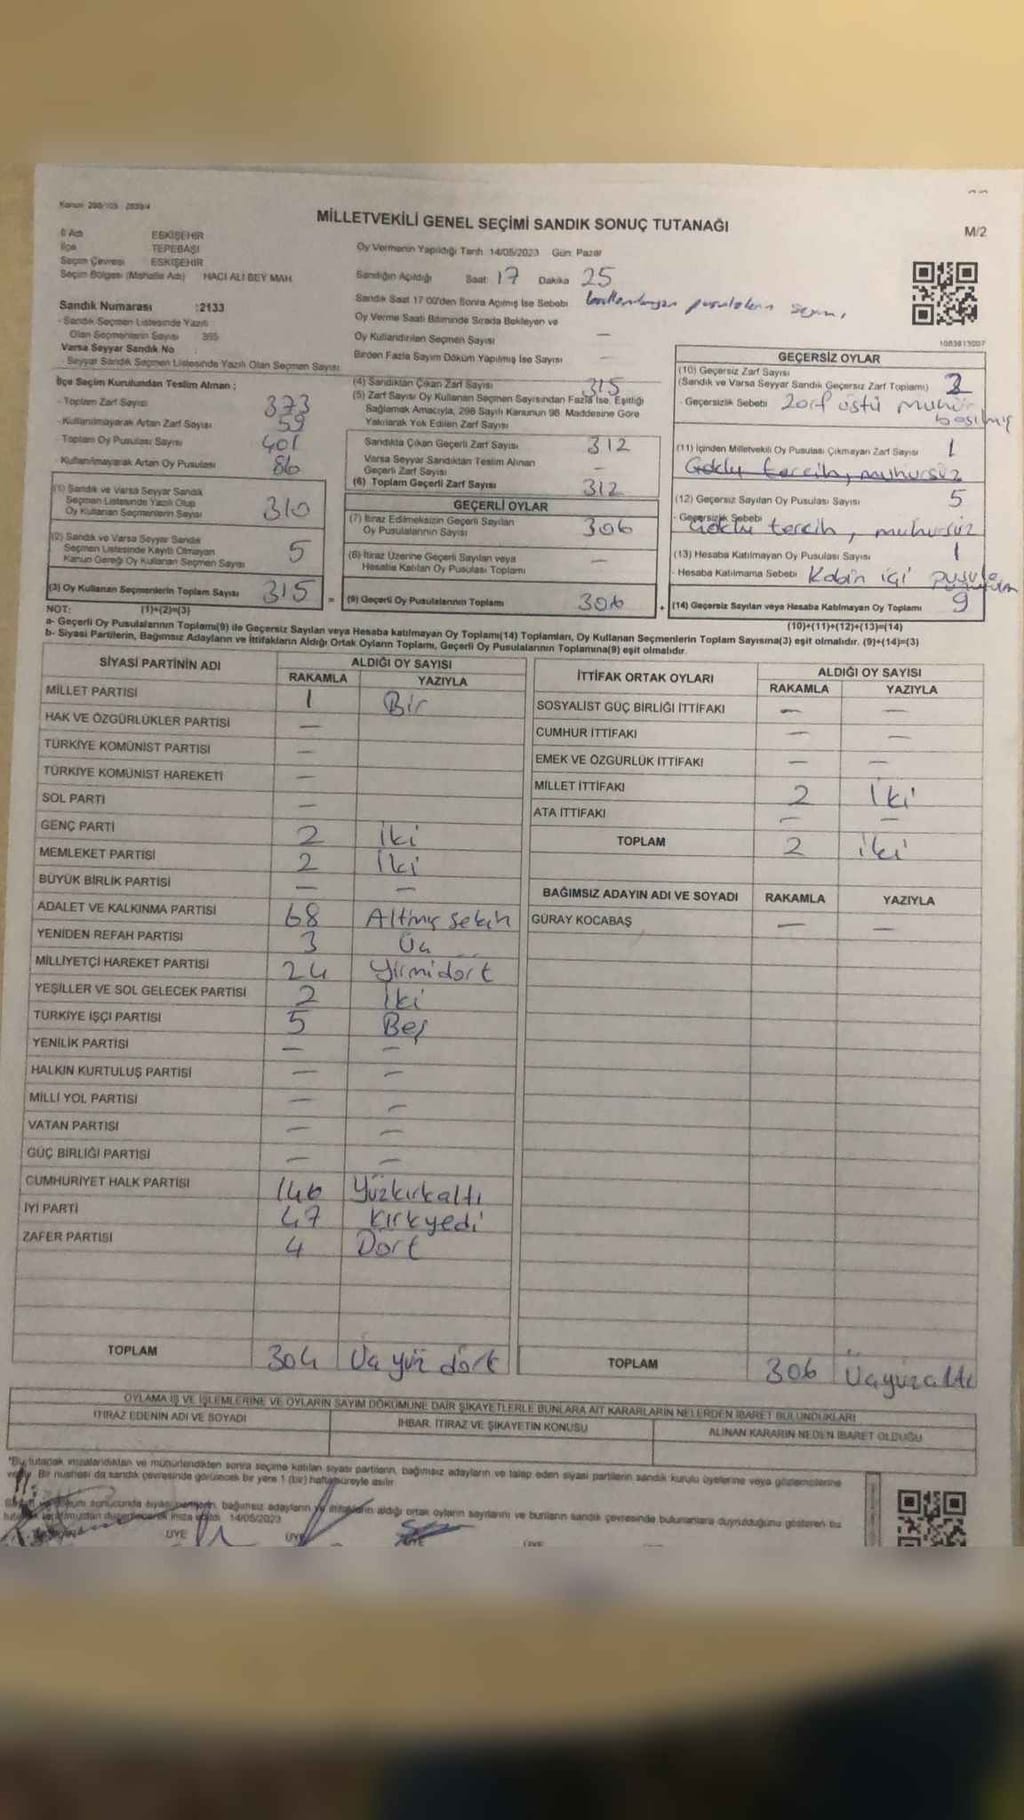 Kanun 298/105
MİLLETVEKİLİ GENEL SEÇİMİ SANDIK SONUÇ TUTANAĞI
M/2
İl Adı ESKİŞEHİR
İlçe TEPEBAŞI
Seçim Çevresi ESKİŞEHİR
Seçim Bölgesi (Mahalle Adı) HACI ALİ BEY MAH
Sandık Numarası :2133
- Sandık Seçmen Listesinde Yazılı
Olan Seçmenlerin Sayısı 395
Varsa Seyyar Sandık No
- Seyyar Sandık Seçmen Listesinde Yazılı Olan Seçmen Sayısı
Oy Vermenin Yapıldığı Tarih 14/05/2023 Gün Pazar
Sandığın Açıldığı Saat 17 Dakika 25
Sandık Saat 17 00'den Sonra Açılmış İse Sebebi kullanılmayan pusulaların sayımı
Oy Verme Saati Bitiminde Sırada Bekleyen ve
Oy Kullandırılan Seçmen Sayısı —
Birden Fazla Sayım Döküm Yapılmış İse Sayısı —
1083813007
İlçe Seçim Kurulundan Teslim Alınan ;
- Toplam Zarf Sayısı 373
- Kullanılmayarak Artan Zarf Sayısı 59
- Toplam Oy Pusulası Sayısı 401
- Kullanılmayarak Artan Oy Pusulası 86
(1) Sandık ve Varsa Seyyar Sandık
Seçmen Listesinde Yazılı Olup
Oy Kullanan Seçmenlerin Sayısı 310
(2) Sandık ve Varsa Seyyar Sandık
Seçmen Listesinde Kayıtlı Olmayan
Kanun Gereği Oy Kullanan Seçmen Sayısı 5
(3) Oy Kullanan Seçmenlerin Toplam Sayısı 315 =
(4) Sandıktan Çıkan Zarf Sayısı 315
(5) Zarf Sayısı Oy Kullanan Seçmen Sayısından Fazla İse, Eşitliği
Sağlamak Amacıyla, 298 Sayılı Kanunun 98. Maddesine Göre
Yakılarak Yok Edilen Zarf Sayısı —
Sandıkta Çıkan Geçerli Zarf Sayısı 312
Varsa Seyyar Sandıktan Teslim Alınan
Geçerli Zarf Sayısı —
(6) Toplam Geçerli Zarf Sayısı 312
GEÇERLİ OYLAR
(7) İtiraz Edilmeksizin Geçerli Sayılan
Oy Pusulalarının Sayısı 306
(8) İtiraz Üzerine Geçerli Sayılan veya
Hesaba Katılan Oy Pusulası Toplamı —
(9) Geçerli Oy Pusulalarının Toplamı 306 +
GEÇERSİZ OYLAR
(10) Geçersiz Zarf Sayısı
(Sandık ve Varsa Seyyar Sandık Geçersiz Zarf Toplamı)
- Geçersizlik Sebebi Zarf üstü mühür
basılmış
(11) İçinden Milletvekili Oy Pusulası Çıkmayan Zarf Sayısı 1
Çoklu tercih, mühürsüz
(12) Geçersiz Sayılan Oy Pusulası Sayısı 5
- Geçersizlik Sebebi Çoklu tercih, mühürsüz
(13) Hesaba Katılmayan Oy Pusulası Sayısı 1
- Hesaba Katılmama Sebebi Kabin içi pusula
(14) Geçersiz Sayılan veya Hesaba Katılmayan Oy Toplamı 9
NOT: (1)+(2)=(3) (10)+(11)+(12)+(13)=(14)
a- Geçerli Oy Pusulalarının Toplamı(9) ile Geçersiz Sayılan veya Hesaba katılmayan Oy Toplamı(14) Toplamları, Oy Kullanan Seçmenlerin Toplam Sayısına(3) eşit olmalıdır. (9)+(14)=(3)
b- Siyasi Partilerin, Bağımsız Adayların ve İttifakların Aldığı Ortak Oyların Toplamı, Geçerli Oy Pusulalarının Toplamına(9) eşit olmalıdır.
SİYASİ PARTİNİN ADI ALDIĞI OY SAYISI
RAKAMLA YAZIYLA
MİLLET PARTİSİ 1 Bir
HAK VE ÖZGÜRLÜKLER PARTİSİ —
TÜRKİYE KOMÜNİST PARTİSİ —
TÜRKİYE KOMÜNİST HAREKETİ —
SOL PARTİ —
GENÇ PARTİ 2 İki
MEMLEKET PARTİSİ 2 İki
BÜYÜK BİRLİK PARTİSİ — —
ADALET VE KALKINMA PARTİSİ 68 Altmış sekiz
YENİDEN REFAH PARTİSİ 3 Üç
MİLLİYETÇİ HAREKET PARTİSİ 24 Yirmidört
YEŞİLLER VE SOL GELECEK PARTİSİ 2 İki
TÜRKİYE İŞÇİ PARTİSİ 5 Beş
YENİLİK PARTİSİ — —
HALKIN KURTULUŞ PARTİSİ — —
MİLLİ YOL PARTİSİ — —
VATAN PARTİSİ — —
GÜÇ BİRLİĞİ PARTİSİ — —
CUMHURİYET HALK PARTİSİ 146 Yüzkırkaltı
İYİ PARTİ 47 Kırkyedi
ZAFER PARTİSİ 4 Dört
TOPLAM 304 Üç yüz dört
İTTİFAK ORTAK OYLARI ALDIĞI OY SAYISI
RAKAMLA YAZIYLA
SOSYALİST GÜÇ BİRLİĞİ İTTİFAKI — —
CUMHUR İTTİFAKI — —
EMEK VE ÖZGÜRLÜK İTTİFAKI — —
MİLLET İTTİFAKI 2 İki
ATA İTTİFAKI — —
TOPLAM 2 iki
BAĞIMSIZ ADAYIN ADI VE SOYADI RAKAMLA YAZIYLA
GÜRAY KOCABAŞ — —
TOPLAM 306 Üçyüzaltı
OYLAMA İŞ VE İŞLEMLERİNE VE OYLARIN SAYIM DÖKÜMÜNE DAİR ŞİKAYETLERLE BUNLARA AİT KARARLARIN NELERDEN İBARET BULUNDUKLARI
İTİRAZ EDENİN ADI VE SOYADI İHBAR, İTİRAZ VE ŞİKAYETİN KONUSU ALINAN KARARIN NEDEN İBARET OLDUĞU
"Bu tutanak imzalandıktan ve mühürlendikten sonra seçime katılan siyasi partilerin, bağımsız adayların ve talep eden siyasi partilerin sandık kurulu üyelerine veya gözlemcilerine
Bir nüshası da sandık çevresinde görülecek bir yere 1 (bir) hafta süreyle asılır.
sonucunda siyasi partilerin, bağımsız adayların ve ittifakların aldığı ortak oyların sayılarını ve bunların sandık çevresinde bulunanlara duyrulduğunu gösteren bu
14/05/2023
ÜYE ÜYE ÜYE